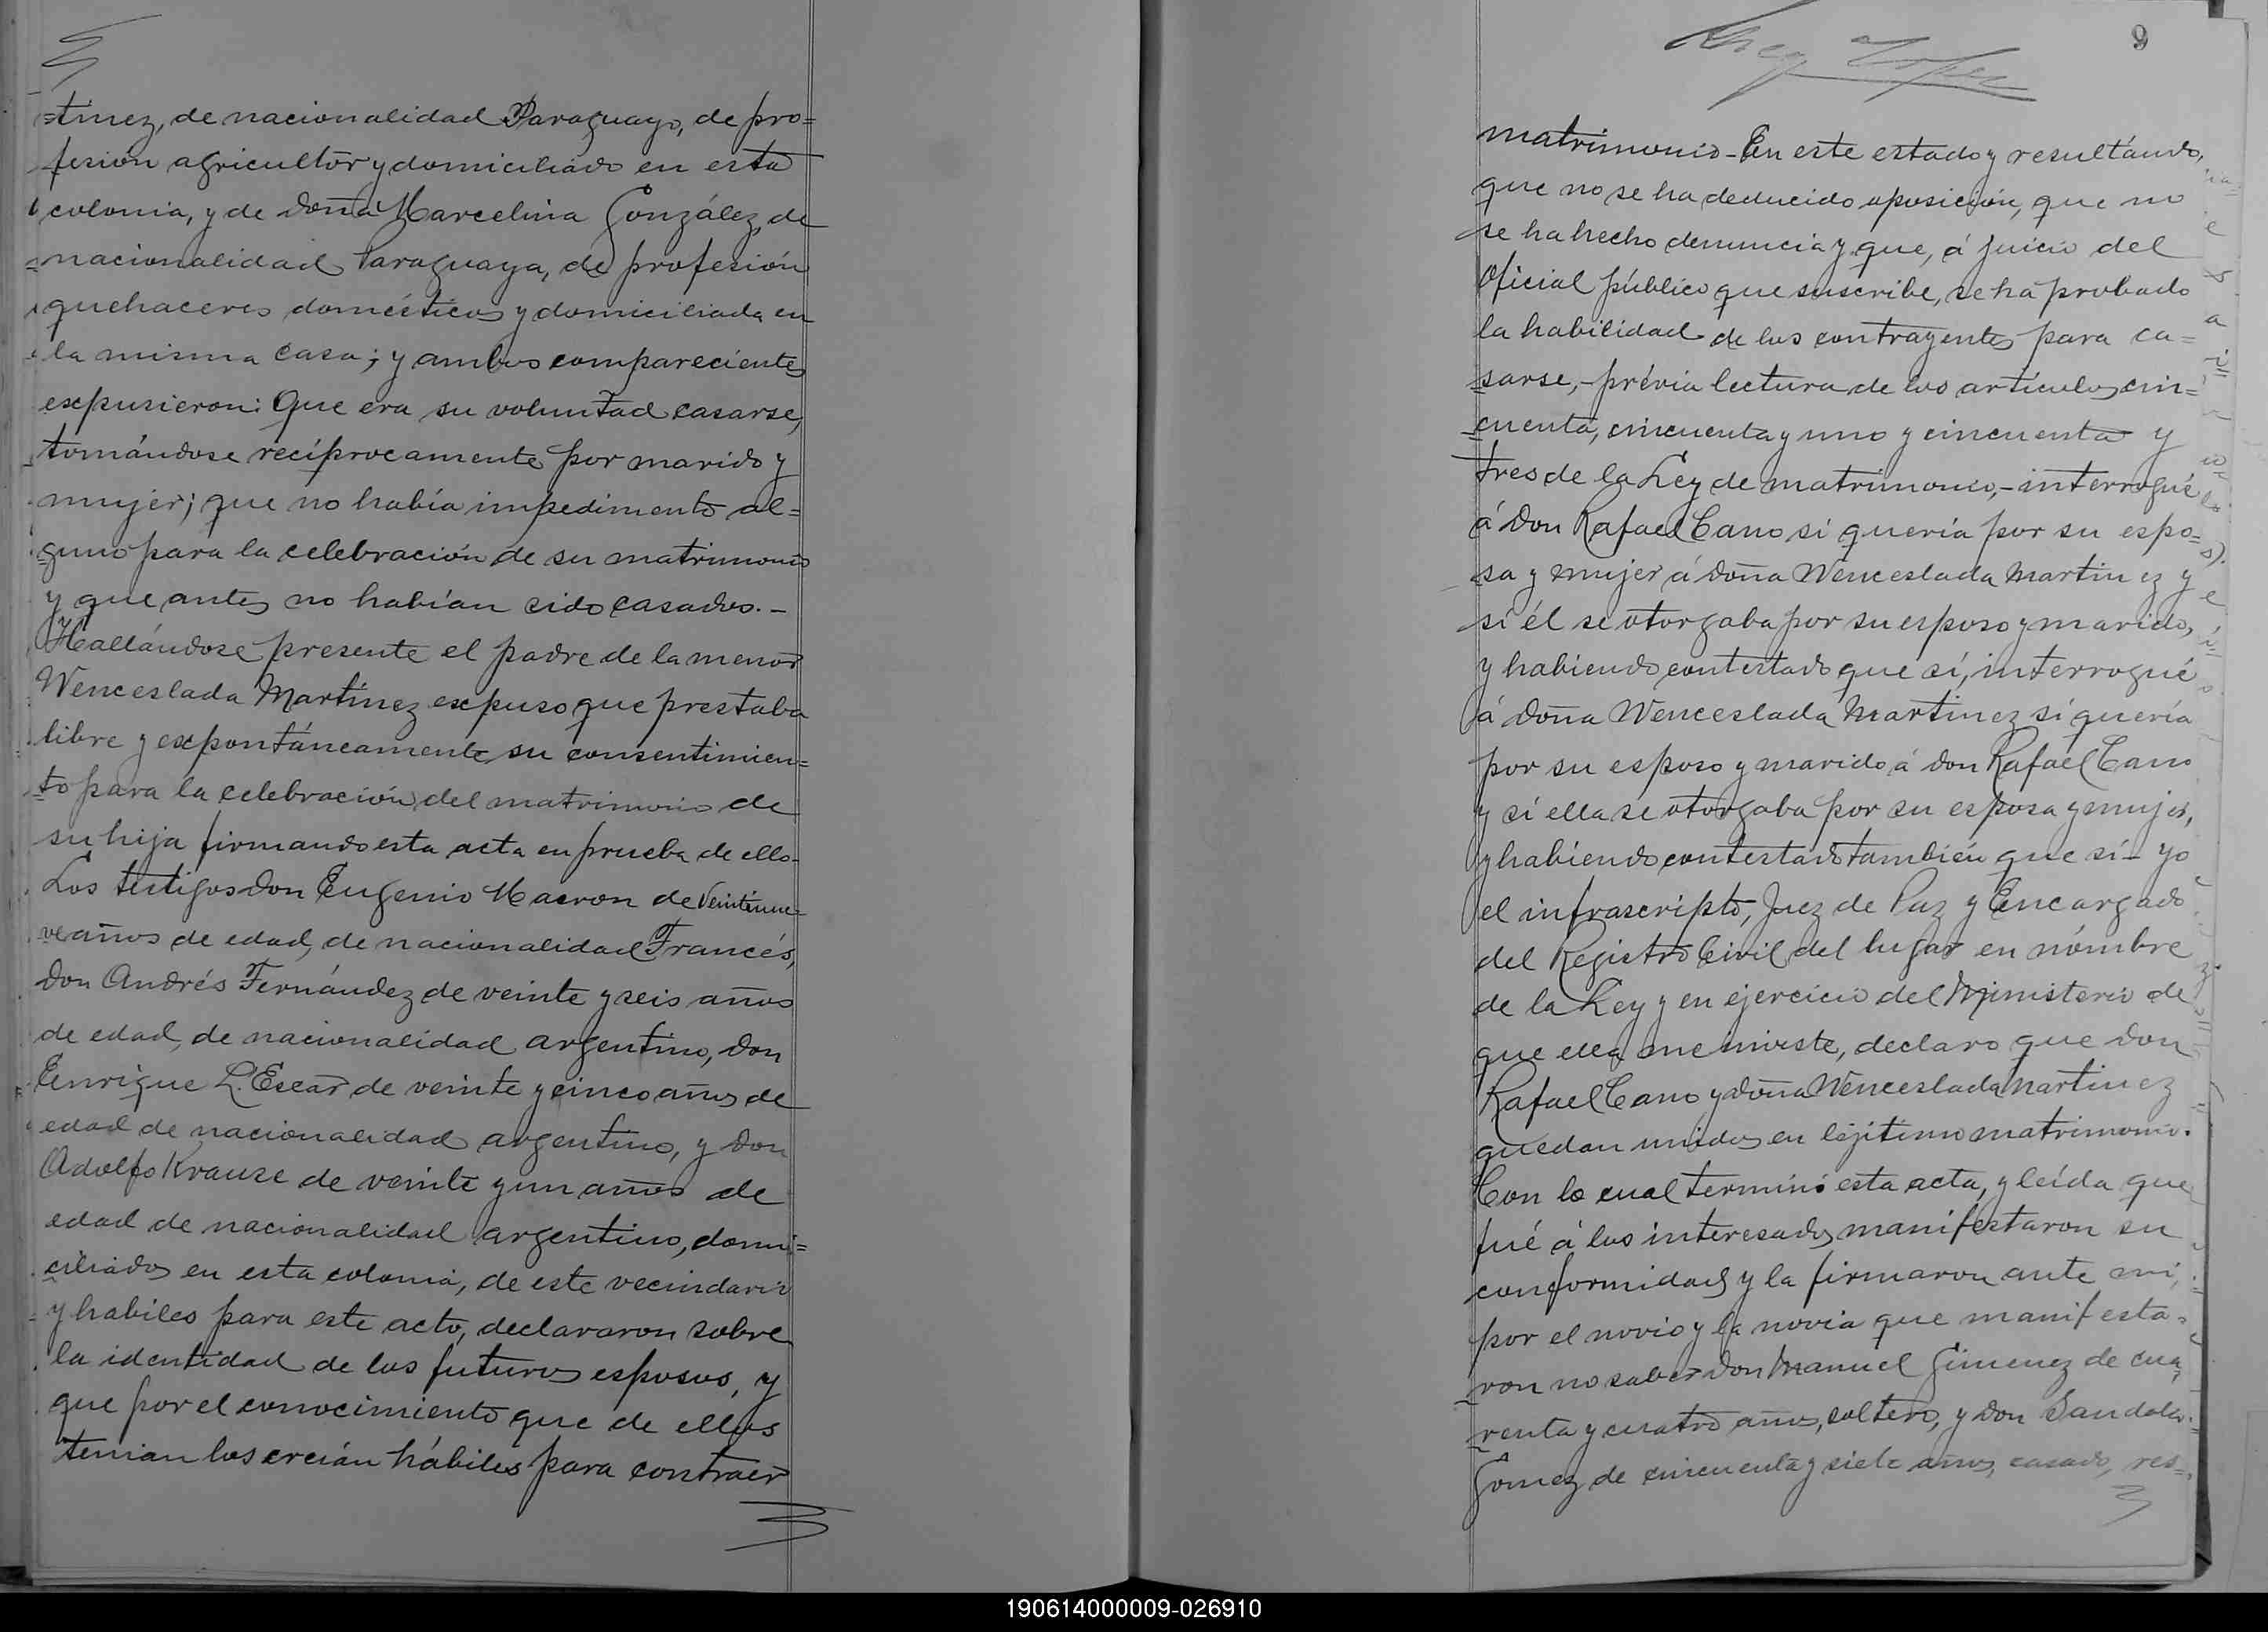 =tinez, de nacionalidad Paraguayo, de pro=
fesión agricultor y domiciliado en esta
colonia, y de doña Marcelina González, de
nacionalidad Paraguaya, de profesión
quehaceres domésticos y domiciliada en
la misma casa; y ambos comparecientes
expusieron: Que era su voluntad casarse,
tomándose recíprocamente por marido y
mujer; que no había impedimento al=
guno para la celebración de su matrimonio
y que antes no habían sido casados. -
Hallándose presente el padre de la menor
Wenceslada Martínez expuso que prestaba
libre y expontáneamente su consentimien=
to para la celebración del matrimonio de
su hija firmando esta acta en prueba de ello-
Los testigos Don Eugenio Macron de veintinue=
ve años de edad, de nacionalidad Francés,
Don Andrés Fernández de veinte y seis años
de edad, de nacionalidad argentino, Don
Enrique L. Escar de veinte y cinco años de
edad de nacionalidad argentino, y Don
Adolfo Krause de veinte y un años de
edad de nacionalidad argentino, domi=
ciliados en esta colonia, de este vecindario
y habiles para este acto, declararon sobre
la identidad de los futuros esposos, y
que por el conocimiento que de ellos
tenian los creián hábiles para contraer
9
matrimonio - En este estado y resultándo,
que no se ha deducido oposición, que no
se ha hecho denuncia y que, á juicio del
Oficial público que suscribe, se há probado
la habilidad de los contrayentes para ca=
sarse, - prévia lectura de los artículos cin=
cuenta, cincuenta y uno y cincuenta y
tres de la Ley de matrimonio, - interrogué
á Don Rafael Cano si quería por su espo=
sa y mujer á doña Wenceslada Martinez y
si él se otorgaba por su esposo y marido,
y habiendo contestado que sí, interrogué
á doña Wenceslada Martinez si quería
por su esposo y marido á don Rafael Cano
y si ella se otorgaba por su esposa y mujer,
y habiendo contestado también que sí - yo
el infrascripto, Juez de Paz y Encargado
del Registro Civil del lugar en nómbre
de la Ley y en ejercicio del Ministerio de
que ella me inviste, declaro que Don
Rafael Cano y doña Wenceslada Martinez
quedan unidos en lejítimo matrimonio.
Con lo cual terminó esta acta, y leída que
fué á los interesados manifestaron su
conformidad y la firmaron ante mi,
por el novio y la novia que manifesta=
ron no saber Don Manuel Gimenez de cua=
renta y cuatro años, soltero, y Don Sandalio
Gomez de cincuenta y siete años, casado, res=
190614000009-026910